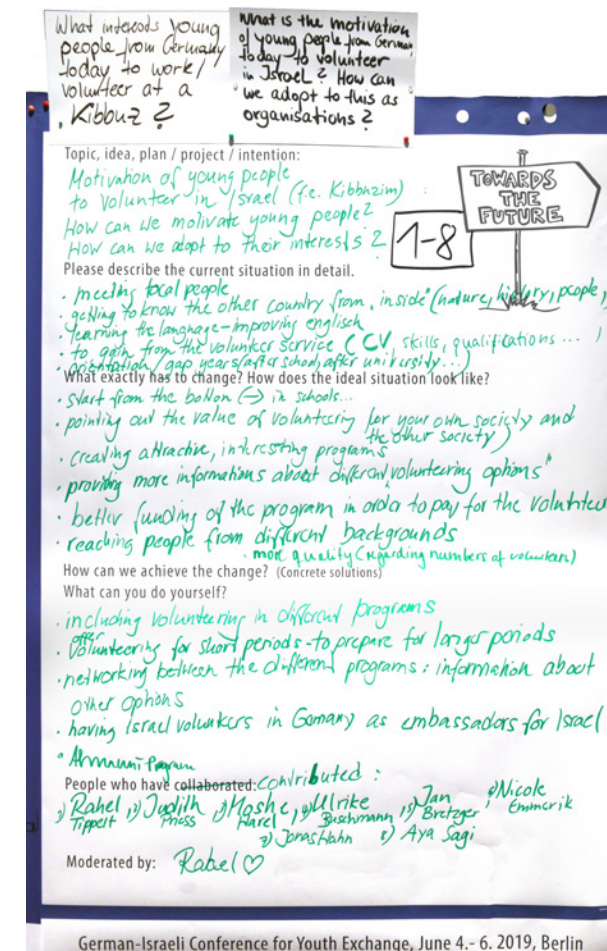 What interests young
people from Germany
today to work/
volunteer at a
Kibbuz?
What is the motivation
of young people from German
today to volunteer
in Israel? How can
we adopt to this as
organisations?
Topic, idea, plan / project / intention:
Motivation of young people
to volunteer in Israel (f.e. Kibbuzim)
How can we motivate young people?
How can we adopt to their interests?
1-8
TOWARDS
THE
FUTURE
Please describe the current situation in detail.
· meeting local people
· getting to know the other country from "inside" (nature, history, people,
· learning the language - improving englisch
· to gain from the volunteer service (CV, skills, qualifications ... )
· orientation / gap years/after school, after university...)
What exactly has to change? How does the ideal situation look like?
· start from the bottom (→ in schools...
· pointing out the value of volunteering for your own society and
the other society)
· creating attractive, interesting programs
· providing more informations about different "volunteering options"
· better funding of the program in order to pay for the volunteer
· reaching people from different backgrounds
· more quality (regarding numbers of volunteers)
How can we achieve the change? (Concrete solutions)
What can you do yourself?
· including volunteering in different programs
offer
· Volunteering for short periods - to prepare for longer periods
· networking between the different programs: information about
other options
· having Israel volunteers in Germany as embassadors for Israel
· Alumni Program
People who have collaborated: contributed:
1) Rahel Tippelt, 1) Judith, 1) Moshe Harel, 1) Ulrike Buschmann, 1) Jan Bretzger, 1) Nicole Emmerik
2) Jonas Hahn 8) Aya Sagi
Moderated by: Rahel ♡
German-Israeli Conference for Youth Exchange, June 4.- 6. 2019, Berlin